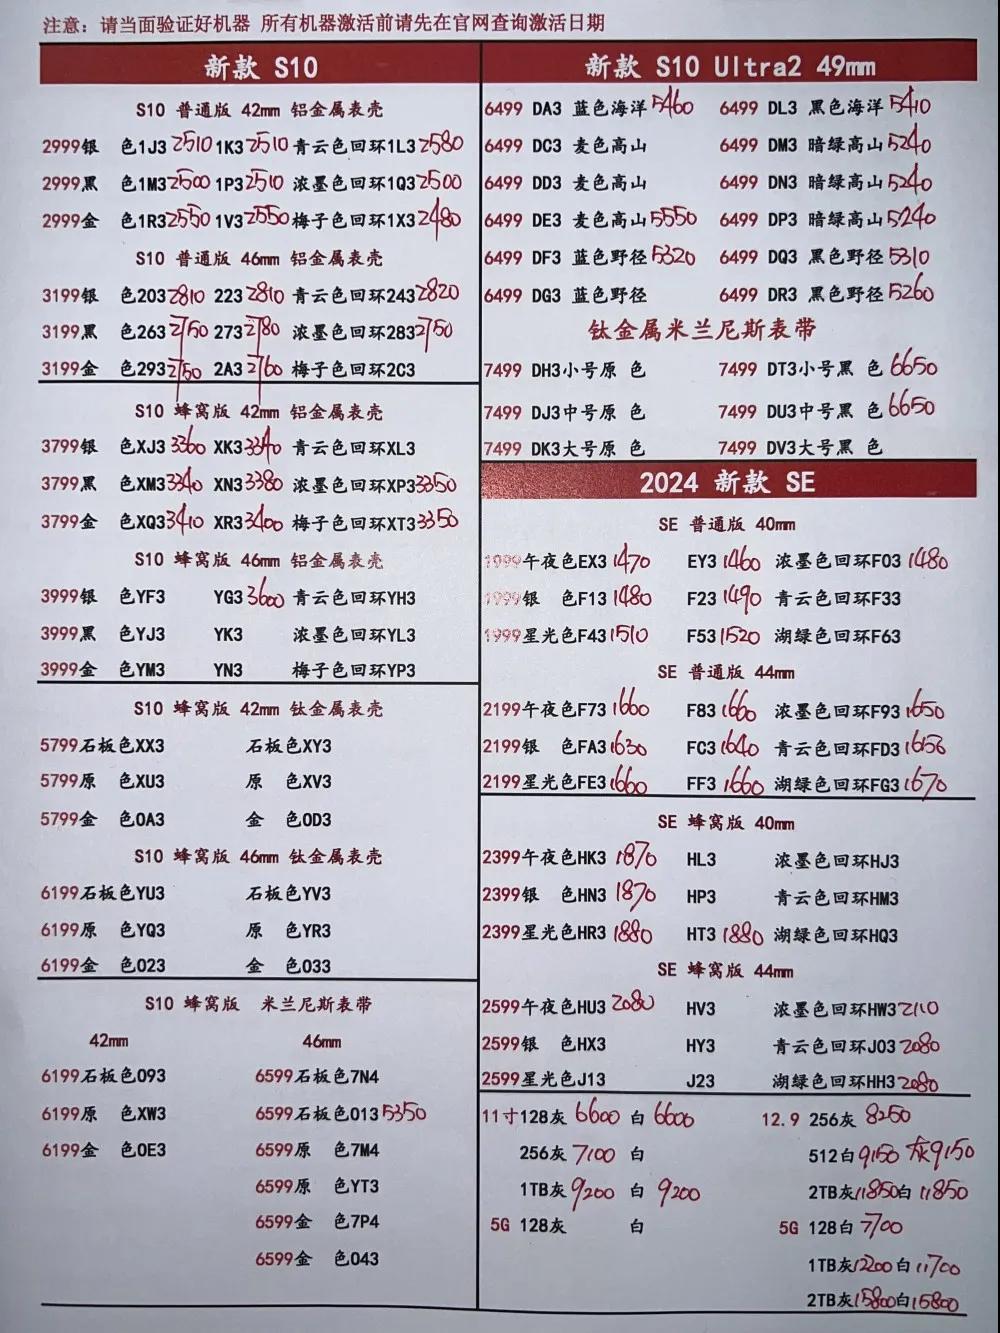 注意：请当面验证好机器 所有机器激活前请先在官网查询激活日期
新款 S10
S10 普通版 42mm 铝金属表壳
2999银 色1J3 2510 1K3 2510 青云色回环1L3 2580
2999黑 色1M3 2500 1P3 2510 浓墨色回环1Q3 2500
2999金 色1R3 2550 1V3 2550 梅子色回环1X3 2480
S10 普通版 46mm 铝金属表壳
3199银 色203 2810 223 2810 青云色回环243 2820
3199黑 色263 2750 273 2780 浓墨色回环283 2750
3199金 色293 2750 2A3 2760 梅子色回环2C3
S10 蜂窝版 42mm 铝金属表壳
3799银 色XJ3 3360 XK3 3340 青云色回环XL3
3799黑 色XM3 3340 XN3 3380 浓墨色回环XP3 3350
3799金 色XQ3 3410 XR3 3400 梅子色回环XT3 3350
S10 蜂窝版 46mm 铝金属表壳
3999银 色YF3 YG3 3600 青云色回环YH3
3999黑 色YJ3 YK3 浓墨色回环YL3
3999金 色YM3 YN3 梅子色回环YP3
S10 蜂窝版 42mm 钛金属表壳
5799石板色XX3 石板色XY3
5799原 色XU3 原 色XV3
5799金 色0A3 金 色0D3
S10 蜂窝版 46mm 钛金属表壳
6199石板色YU3 石板色YV3
6199原 色YQ3 原 色YR3
6199金 色023 金 色033
S10 蜂窝版 米兰尼斯表带
42mm 46mm
6199石板色093 6599石板色7N4
6199原 色XW3 6599石板色013 5350
6199金 色0E3 6599原 色7M4
6599原 色YT3
6599金 色7P4
6599金 色043
新款 S10 Ultra2 49mm
6499 DA3 蓝色海洋 5460 6499 DL3 黑色海洋 5410
6499 DC3 麦色高山 6499 DM3 暗绿高山 5240
6499 DD3 麦色高山 6499 DN3 暗绿高山 5240
6499 DE3 麦色高山 5550 6499 DP3 暗绿高山 5240
6499 DF3 蓝色野径 5320 6499 DQ3 黑色野径 5310
6499 DG3 蓝色野径 6499 DR3 黑色野径 5260
钛金属米兰尼斯表带
7499 DH3小号原 色 7499 DT3小号黑 色 6650
7499 DJ3中号原 色 7499 DU3中号黑 色 6650
7499 DK3大号原 色 7499 DV3大号黑 色
2024 新款 SE
SE 普通版 40mm
1999午夜色EX3 1470 EY3 1460 浓墨色回环F03 1480
1999银 色F13 1480 F23 1490 青云色回环F33
1999星光色F43 1510 F53 1520 湖绿色回环F63
SE 普通版 44mm
2199午夜色F73 1660 F83 1660 浓墨色回环F93 1650
2199银 色FA3 1630 FC3 1640 青云色回环FD3 1650
2199星光色FE3 1660 FF3 1660 湖绿色回环FG3 1670
SE 蜂窝版 40mm
2399午夜色HK3 1870 HL3 浓墨色回环HJ3
2399银 色HN3 1870 HP3 青云色回环HM3
2399星光色HR3 1880 HT3 1880 湖绿色回环HQ3
SE 蜂窝版 44mm
2599午夜色HU3 2080 HV3 浓墨色回环HW3 2110
2599银 色HX3 HY3 青云色回环J03 2080
2599星光色J13 J23 湖绿色回环HH3 2080
11寸128灰 6600 白 6600 12.9 256灰 8250
256灰 7100 白 512白 9150 灰9150
1TB灰 9200 白 9200 2TB灰 11850 白 11850
5G 128灰 白 5G 128白 7700
1TB灰 12200 白 11700
2TB灰 15800 白 15800